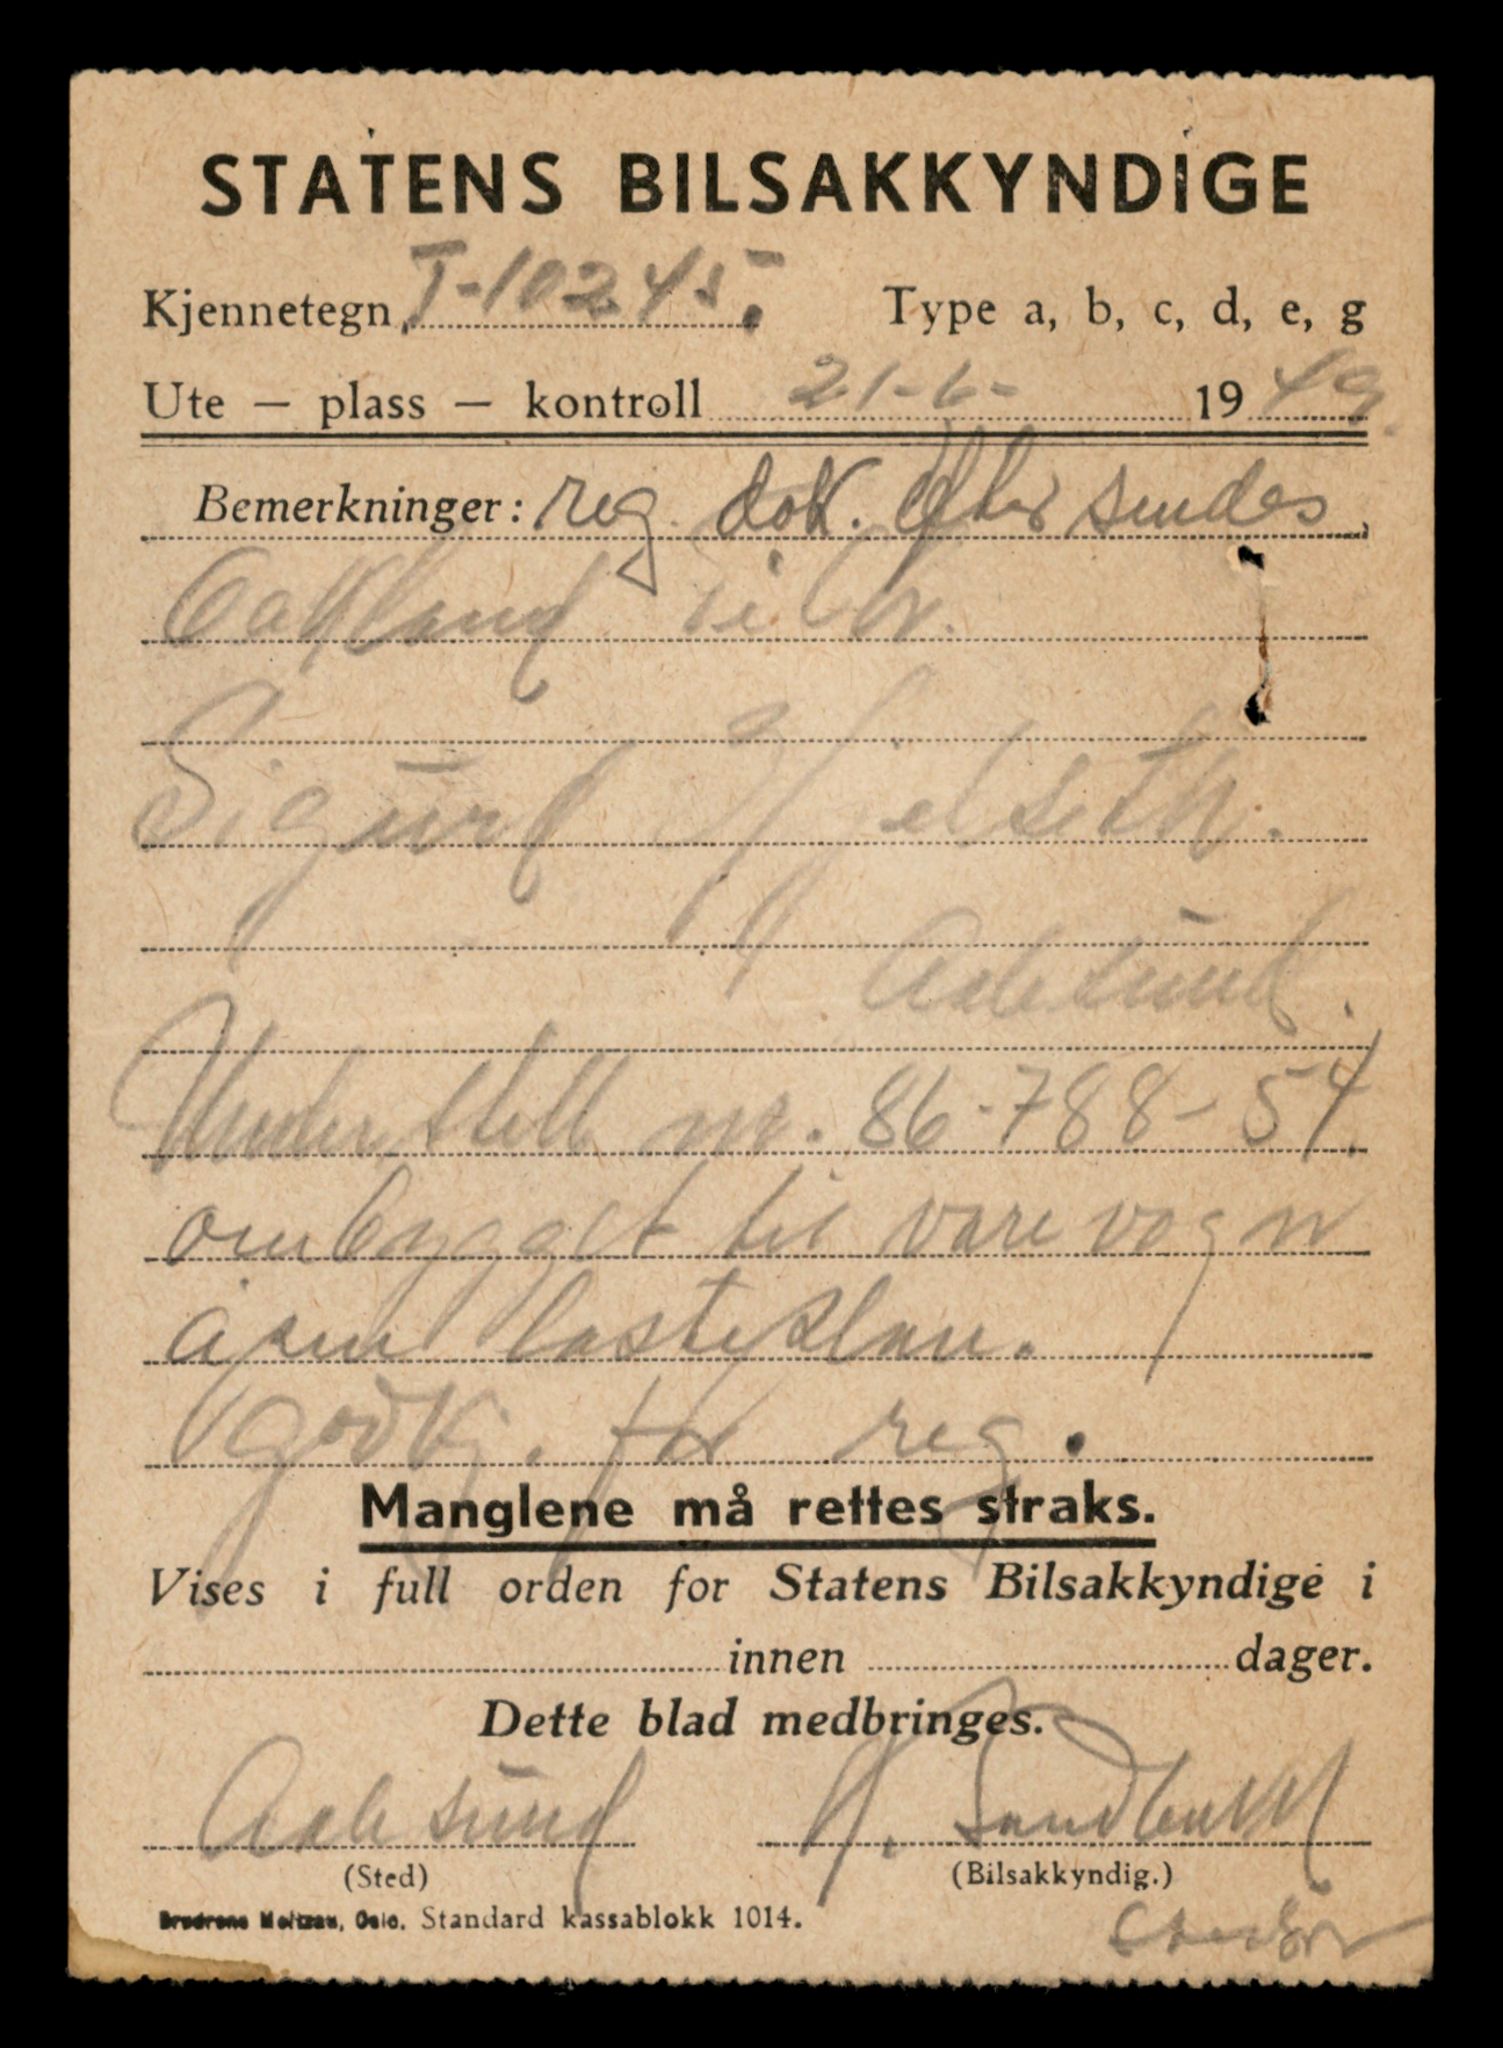 STATENS BILSAKKYNDIGE
Kjennetegn T-10245. Type a, b, c, d, e, g
Ute — plass — kontroll 21-6- 1949
Bemerkninger: reg. dok. efter sendes.
Oakland
Sigurd Hjelseth.
Aalesund.
Understell nr. 86-788-54
ombygget til varevogn
åpen lasteplan.
godkj. for reg.
Manglene må rettes straks.
Vises i full orden for Statens Bilsakkyndige i
innen dager.
Dette blad medbringes.
Aalesund
(Sted) (Bilsakkyndig.)
Brødrene Meltzau, Oslo. Standard kassablokk 1014.